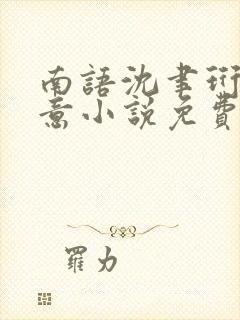 南語沈聿珩
意小說免費
羅力